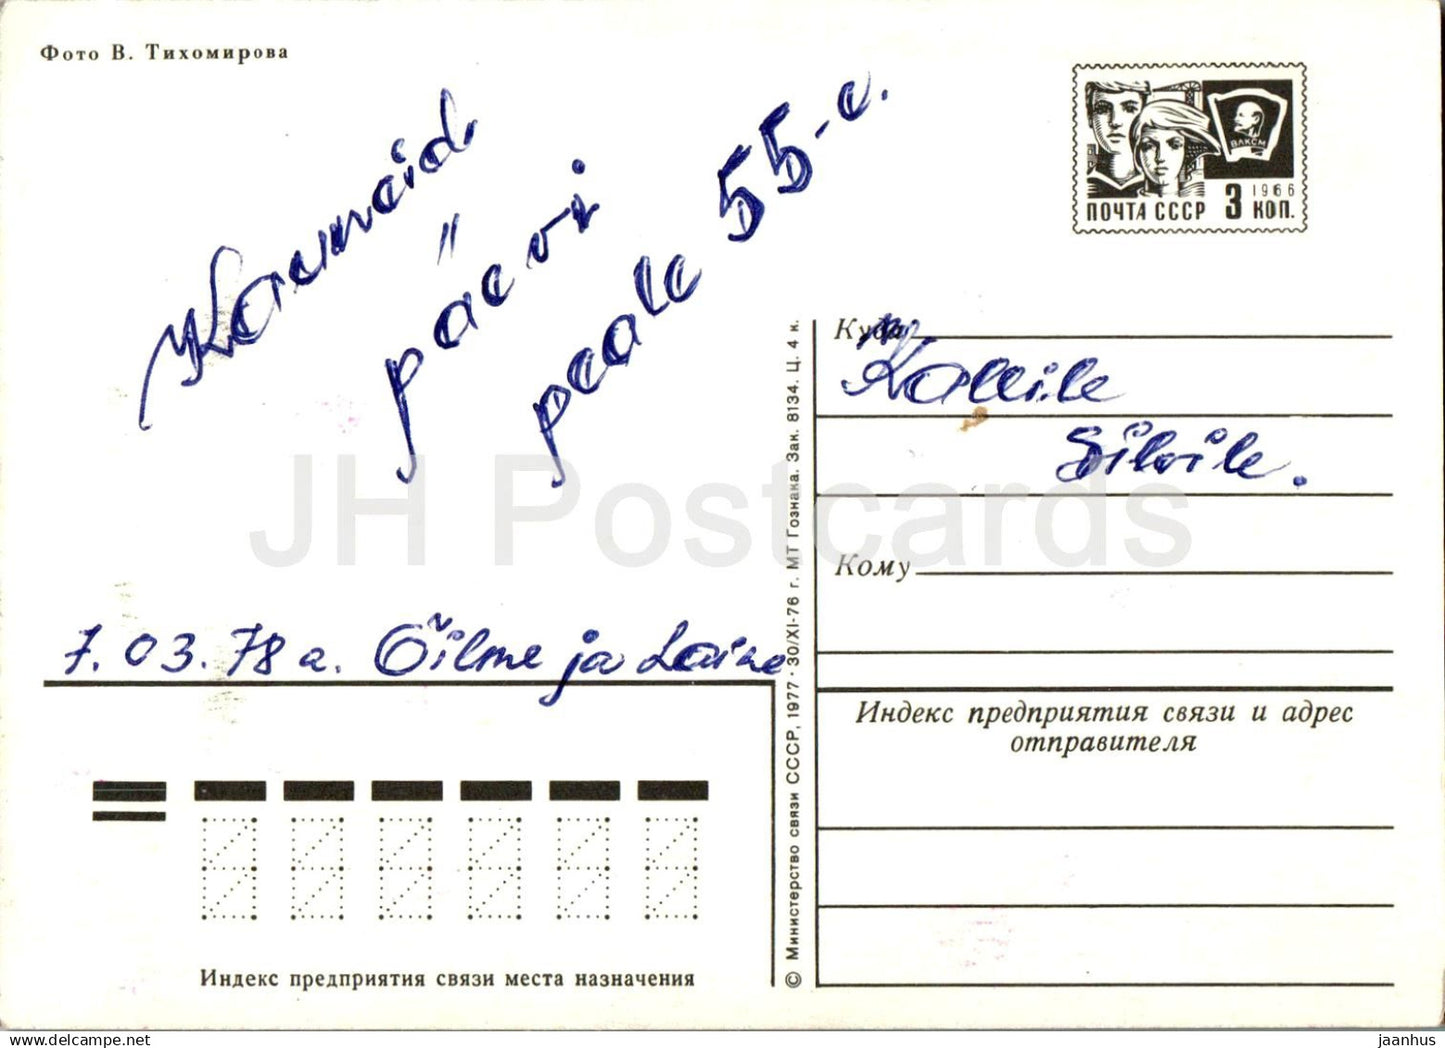 Фото В. Тихомирова
Kauneid
päevi
peale 55-e.
ВЛКСМ
1966
ПОЧТА СССР 3 КОП.
Куда
Kallile
Silvile.
Кому
7.03.78 a. Õilme ja Laine
Индекс предприятия связи и адрес
отправителя
Индекс предприятия связи места назначения
© Министерство связи СССР, 1977 · 30/XI-76 г. МТ Гознака. Зак. 8134. Ц. 4 к.
JH Postcards
www.delcampe.net
jaanhus